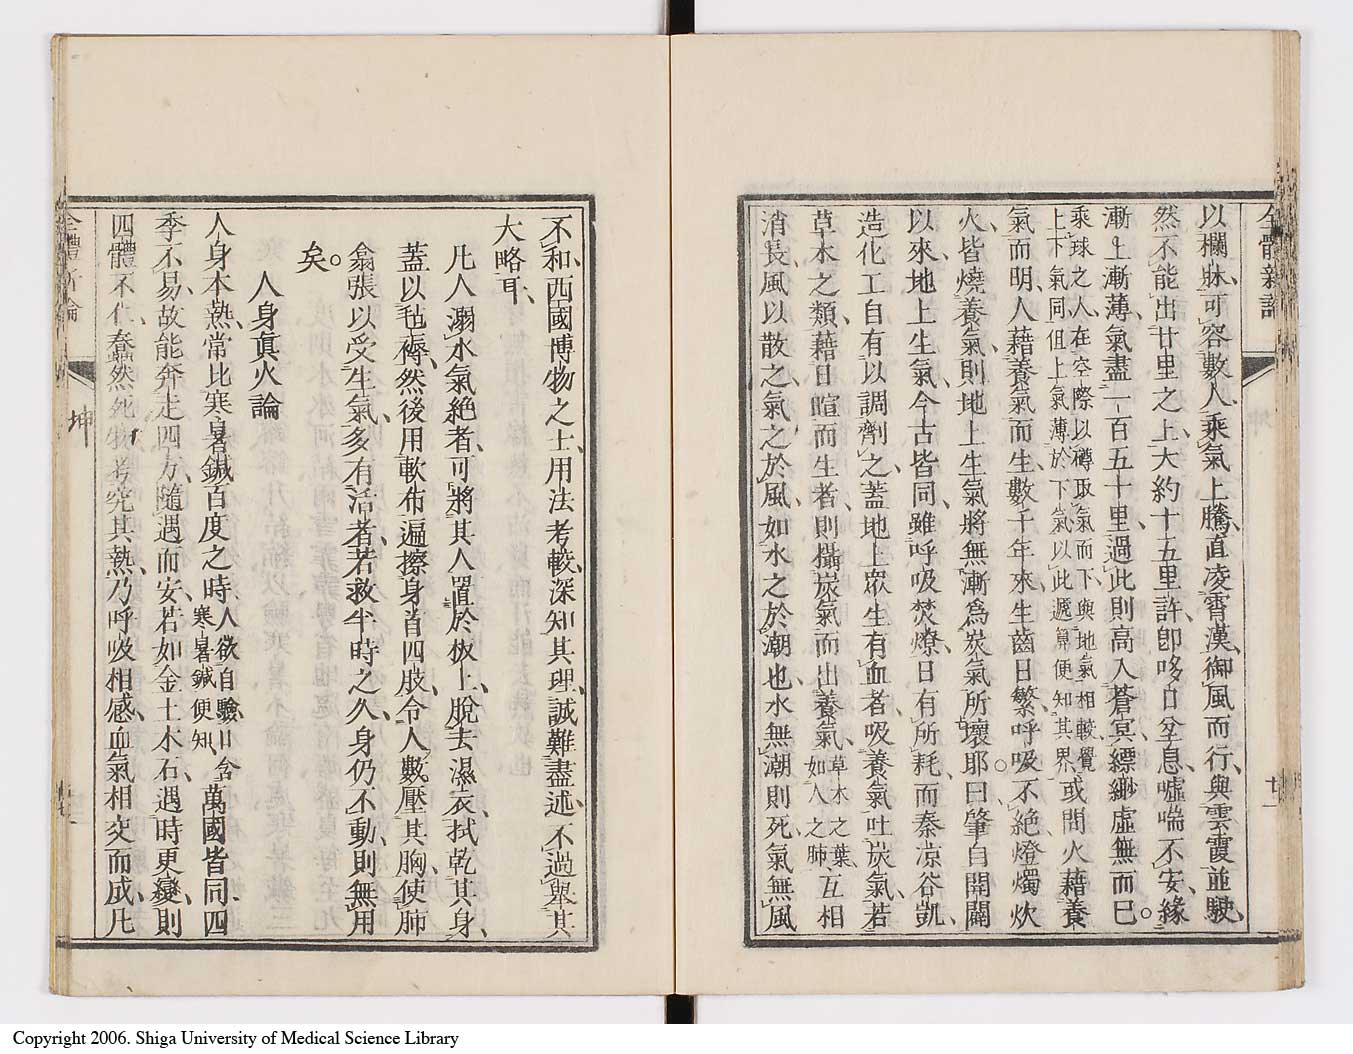 全體新論
坤
廿一
以欄牀可容數人乘氣上騰直凌霄漢御風而行與雲霞並駛
然不能出廿里之上大約十五里許卽哆口坌息噓喘不安緣
漸上漸薄氣盡一百五十里過此則高入蒼冥縹緲虛無而已
乘球之人在空際以罇取氣而下與地氣相較覺
上下氣同但上氣薄於下氣以此遞算便知其界
或問火藉養
氣而明人藉養氣而生數千年來生齒日繁呼吸不絕燈燭炊
火皆燒養氣則地上生氣將無漸爲炭氣所壞耶曰肇自開闢
以來地上生氣今古皆同雖呼吸焚燎日有所耗而泰凉谷凱
造化工自有以調劑之蓋地上眾生有血者吸養氣吐炭氣若
草木之類藉日暄而生者則攝炭氣而出養氣
草木之葉
如人之肺
互相
消長風以散之氣之於風如水之於潮也水無潮則死氣無風
不和西國博物之士用法考較深知其理誠難盡述不過舉其
大略耳
凡人溺水氣絕者可將其人置於板上脫去濕衣拭乾其身
蓋以毡褥然後用軟布遍擦身首四肢令人數壓其胸使肺
翕張以受生氣多有活者若救半時之久身仍不動則無用
矣
人身眞火論
人身本熱常比寒暑鍼百度之時
人欲自驗口含
寒暑鍼便知
萬國皆同四
季不易故能奔走四方隨遇而安若如金土木石遇時更變則
四體不仁蠢然死物考究其熱乃呼吸相感血氣相交而成凡
全體新論
坤